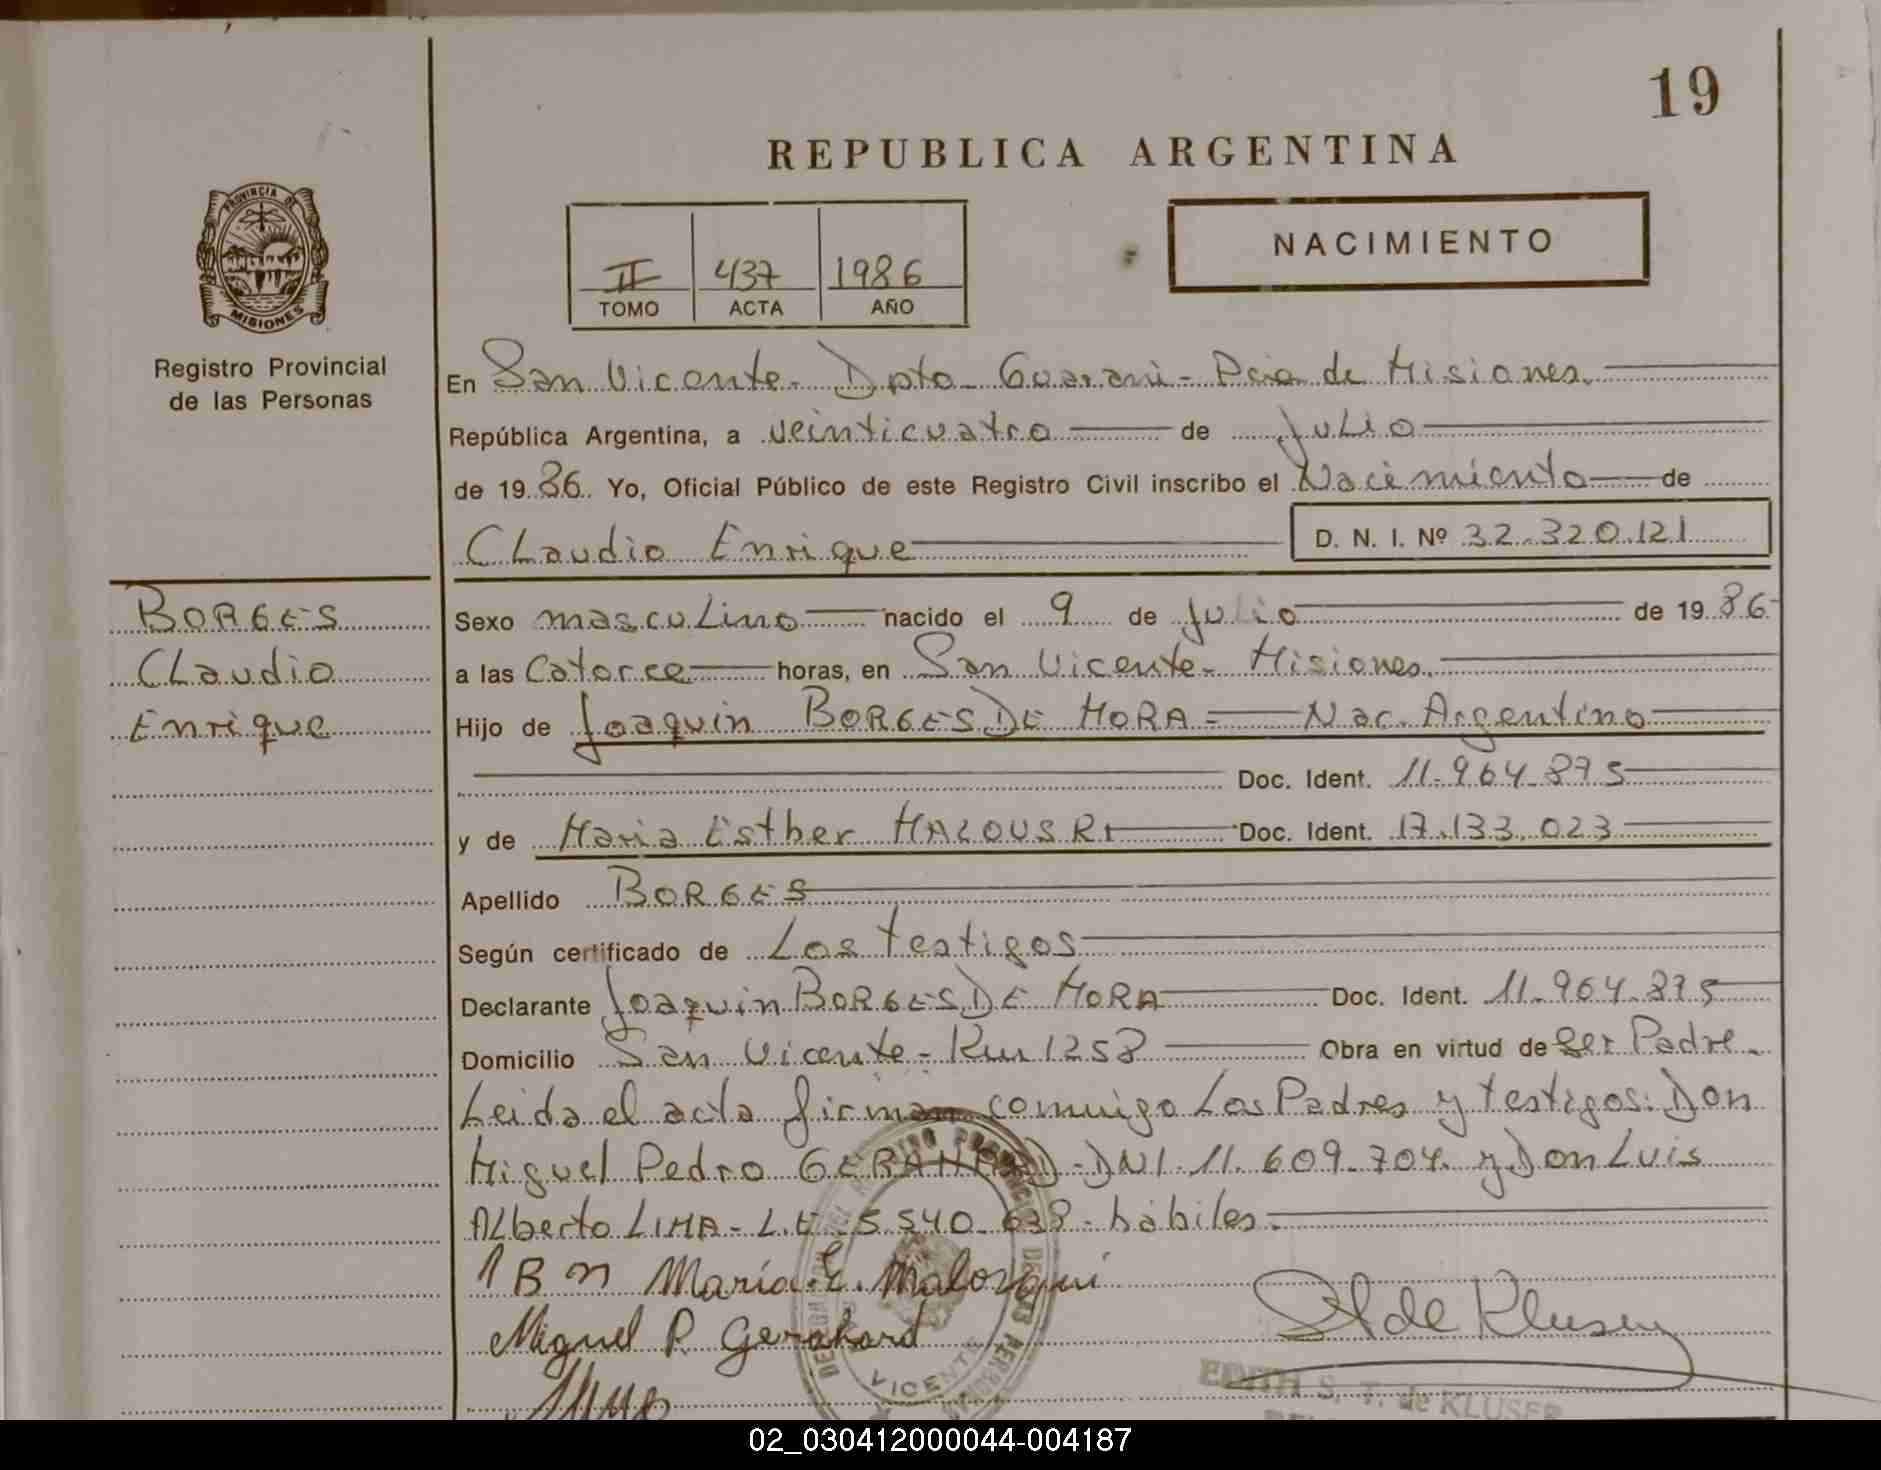 19
REPUBLICA ARGENTINA
PROVINCIA DE
MISIONES
Registro Provincial
de las Personas
II 437 1986
TOMO ACTA AÑO
NACIMIENTO
En San Vicente - Dpto - Guarani - Pcia de Misiones.
República Argentina, a veinticuatro de Julio
de 1986. Yo, Oficial Público de este Registro Civil inscribo el Nacimiento de
Claudio Enrique
D. N. I. Nº 32.320.121
BORGES
Claudio
Enrique
Sexo masculino nacido el 9 de julio de 1986
a las Catorce horas, en San Vicente - Misiones.
Hijo de Joaquin BORGES DE MORA = Nac. Argentino
Doc. Ident. 11.964.875
y de Maria Esther Doc. Ident. 17.133.023
Apellido BORGES
Según certificado de Los testigos
Declarante Joaquin BORGES DE MORA Doc. Ident. 11.964.875
Domicilio San Vicente - Km 1258 Obra en virtud de ser Padre.
Leida el acta firman conmigo Los Padres y testigos: Don
Miguel Pedro - DNI. 11.609.704. y Don Luis
Alberto LIMA - L.E 5.540.638 - hábiles.
1 B M María E. Malosqui
Miguel P. Gerahard
VICENTE
EDITH S. T. de KLUSER
02_030412000044-004187